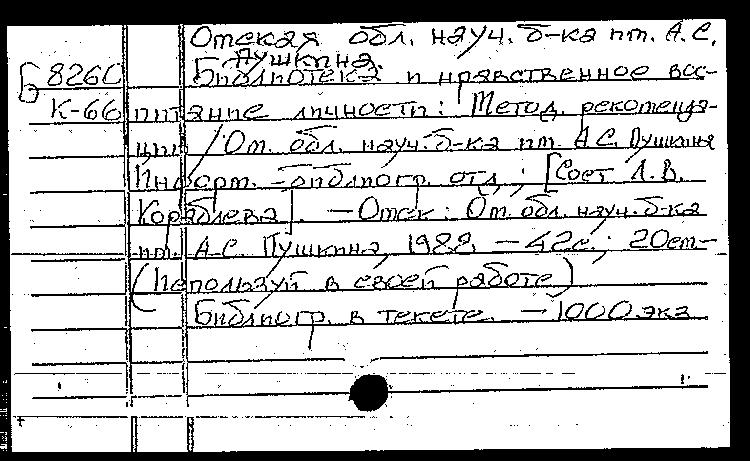 Омская обл. науч. б-ка им. А.С.
Пушкина.
Б 8260 Библиотека и нравственное вос-
К-66 питание личности: Метод. рекоменда-
ции / Ом. обл. науч. б-ка им. А.С. Пушкина
Информ.-библиогр. отд.; [Сост. Л.В.
Кораблева]. — Омск: Ом. обл. науч. б-ка
им. А.С. Пушкина, 1988. — 42с.; 20см—
(Используй в своей работе)
Библиогр. в тексте. — 1000 экз